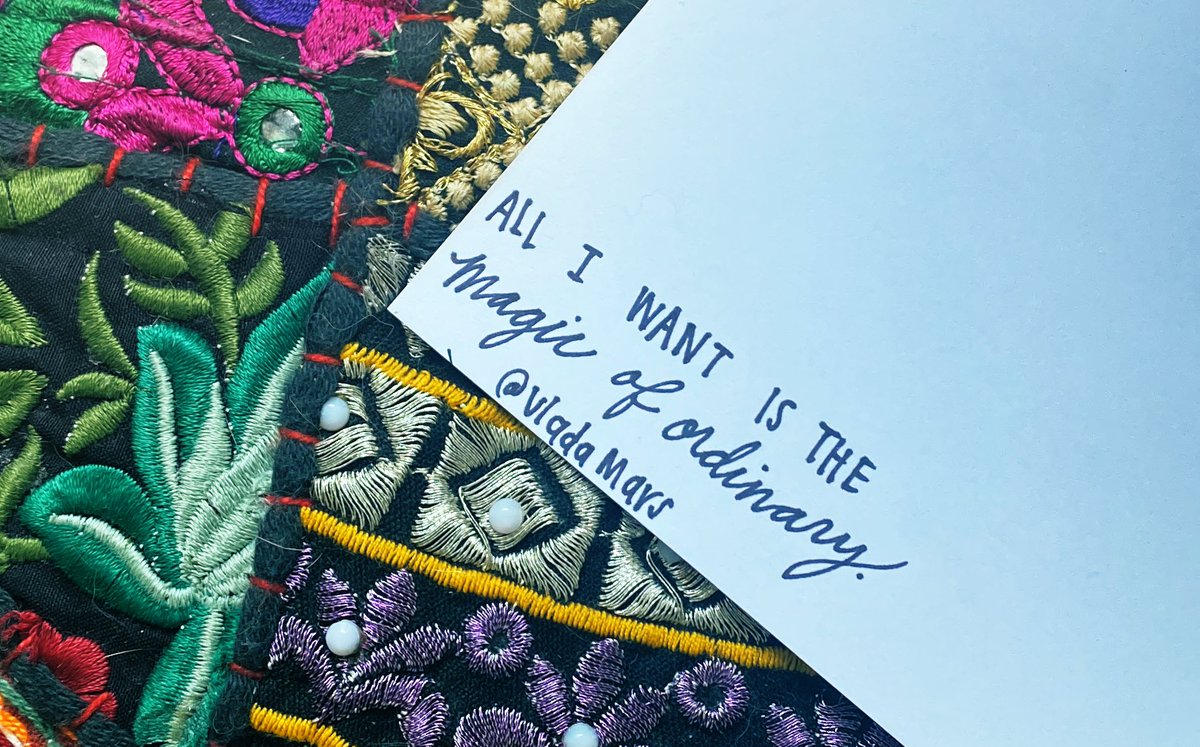 ALL I WANT IS THE
magic of ordinary.
@Vlada Mars